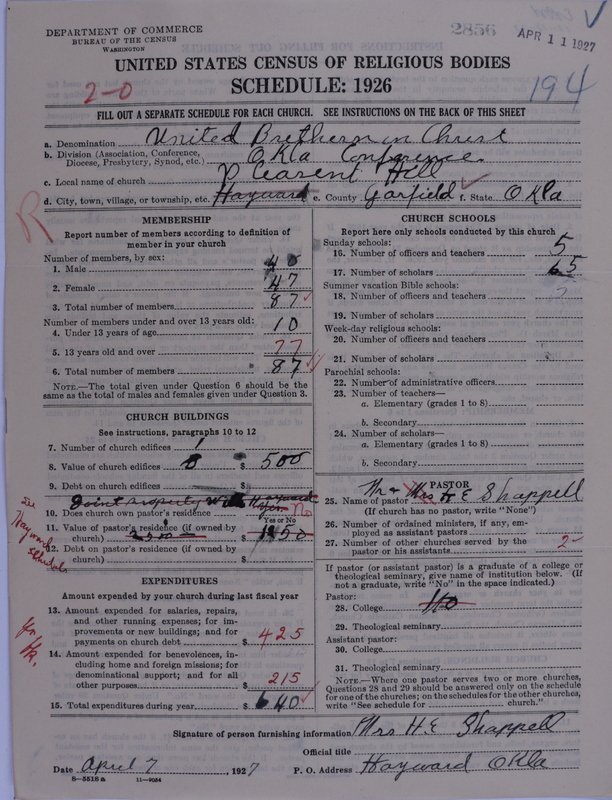 DEPARTMENT OF COMMERCE
BUREAU OF THE CENSUS
WASHINGTON
2856
APR 11 1927
UNITED STATES CENSUS OF RELIGIOUS BODIES
SCHEDULE: 1926
2-0
194
FILL OUT A SEPARATE SCHEDULE FOR EACH CHURCH. SEE INSTRUCTIONS ON THE BACK OF THIS SHEET
a. Denomination United Brethern in Christ
b. Division (Association, Conference, Diocese, Presbytery, Synod, etc.) Okla Conference
c. Local name of church Pleasent Hill
d. City, town, village, or township, etc. Hayward e. County Garfield f. State Okla
R
MEMBERSHIP
Report number of members according to definition of member in your church
Number of members, by sex:
1. Male 40
2. Female 47
3. Total number of members 87
Number of members under and over 13 years old:
4. Under 13 years of age 10
5. 13 years old and over 77
6. Total number of members 87
NOTE.—The total given under Question 6 should be the same as the total of males and females given under Question 3.
CHURCH BUILDINGS
See instructions, paragraphs 10 to 12
7. Number of church edifices 1
8. Value of church edifices $ 500
9. Debt on church edifices $
Joint property with Hayward
10. Does church own pastor's residence No
Yes or No
11. Value of pastor's residence (if owned by church) $
12. Debt on pastor's residence (if owned by church) $
see Hayward schedule
EXPENDITURES
Amount expended by your church during last fiscal year
13. Amount expended for salaries, repairs, and other running expenses; for improvements or new buildings; and for payments on church debt $ 425
14. Amount expended for benevolences, including home and foreign missions; for denominational support; and for all other purposes $ 215
15. Total expenditures during year $ 640
CHURCH SCHOOLS
Report here only schools conducted by this church
Sunday schools:
16. Number of officers and teachers 5
17. Number of scholars 65
Summer vacation Bible schools:
18. Number of officers and teachers
19. Number of scholars
Week-day religious schools:
20. Number of officers and teachers
21. Number of scholars
Parochial schools:
22. Number of administrative officers
23. Number of teachers—
a. Elementary (grades 1 to 8)
b. Secondary
24. Number of scholars—
a. Elementary (grades 1 to 8)
b. Secondary
PASTOR
25. Name of pastor Mr & Mrs H E Shappell
(If church has no pastor, write "None")
26. Number of ordained ministers, if any, employed as assistant pastors
27. Number of other churches served by the pastor or his assistants 2
If pastor (or assistant pastor) is a graduate of a college or theological seminary, give name of institution below. (If not a graduate, write "No" in the space indicated.)
Pastor:
28. College No
29. Theological seminary
Assistant pastor:
30. College
31. Theological seminary
NOTE.—Where one pastor serves two or more churches, Questions 28 and 29 should be answered only on the schedule for one of the churches; on the schedules for the other churches, write "See schedule for church."
Signature of person furnishing information Mrs H E Shappell
Official title
Date April 7, 1927 P. O. Address Hayward Okla
8-5518a 11-9064